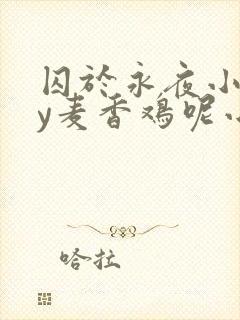 囚於永夜小
y麦香鸡呢小
哈拉